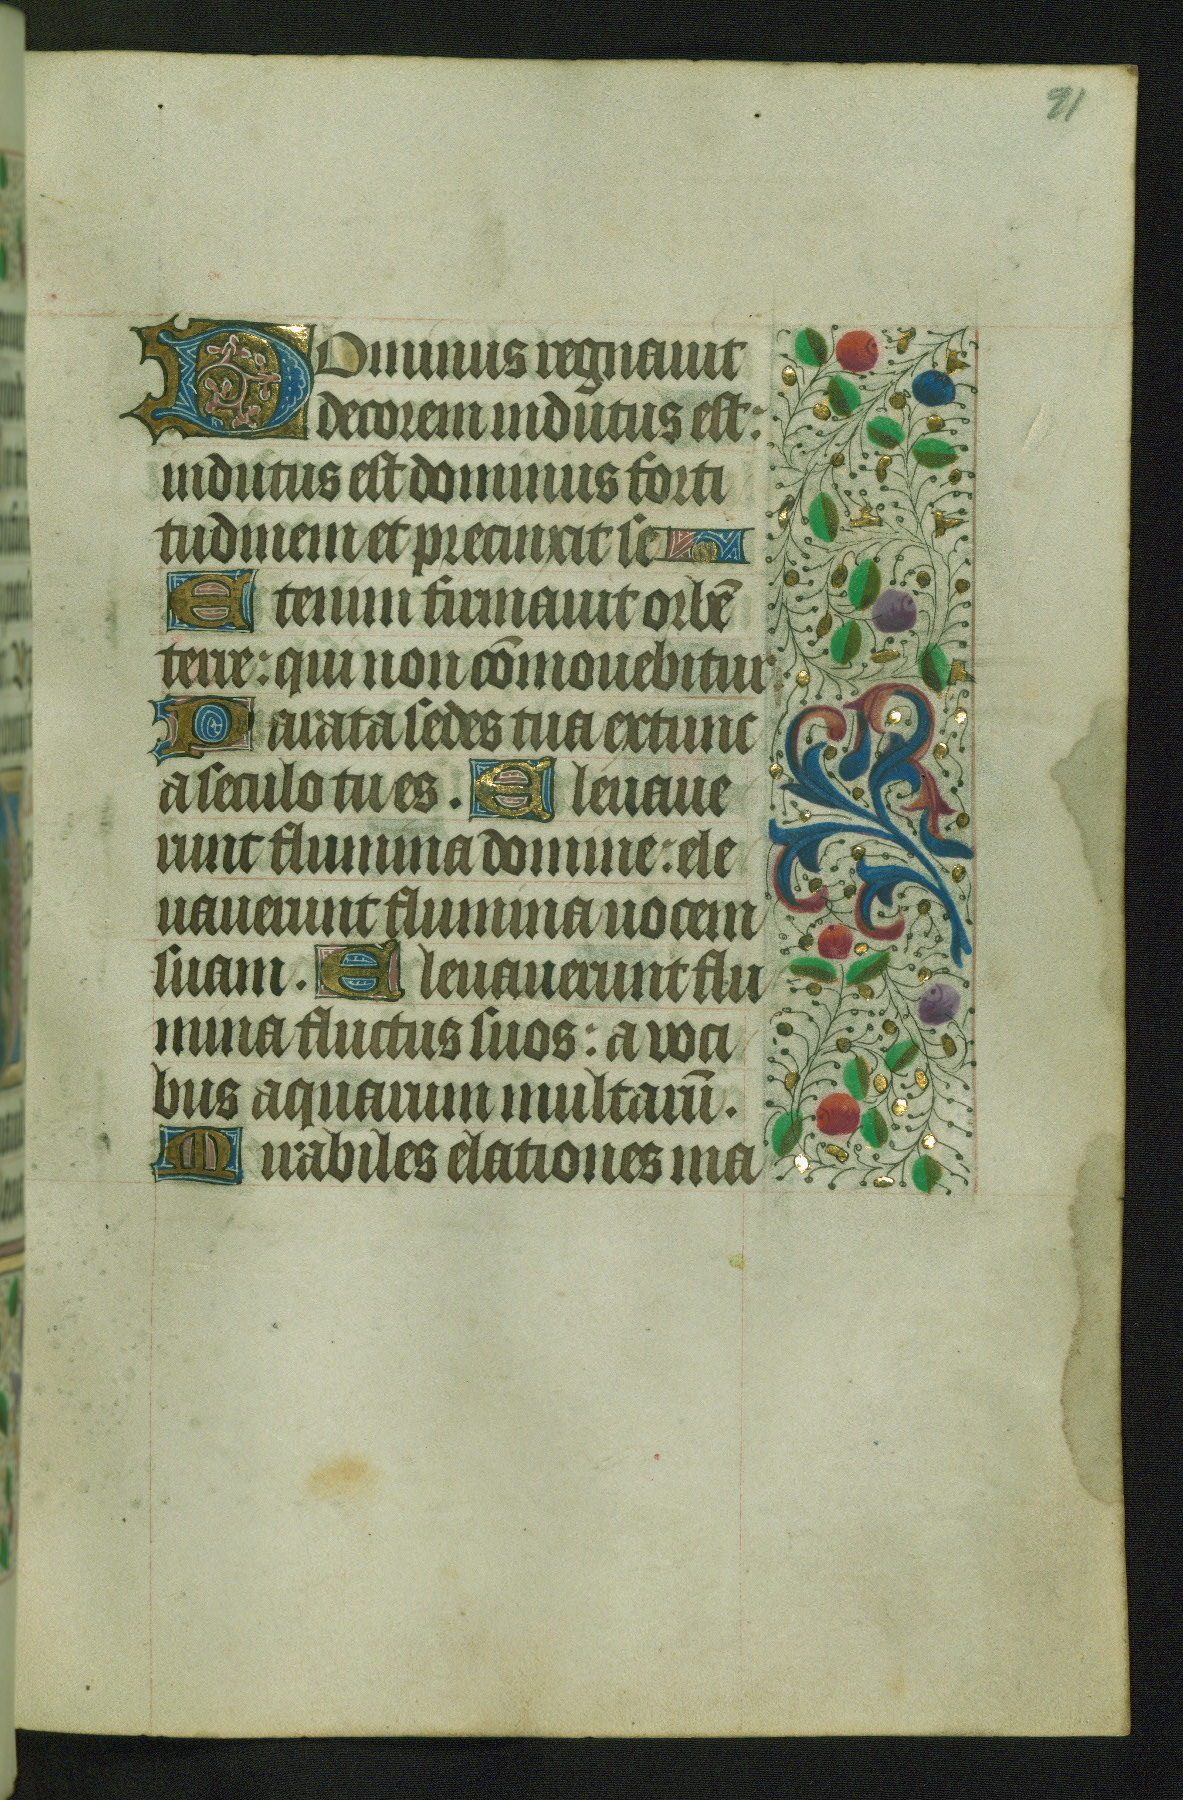 91
Dominus regnauit
decorem indutus est:
indutus est dominus forti
tudinem et precinxit se
Etenim firmauit orbē
terre: qui non cōmouebitur
Parata sedes tua extunc
a seculo tu es. Eleuaue
runt flumina domine: ele
uauerunt flumina uocem
suam. Eleuauerunt flu
mina fluctus suos: a voci
bus aquarum multarū.
Mirabiles elationes ma